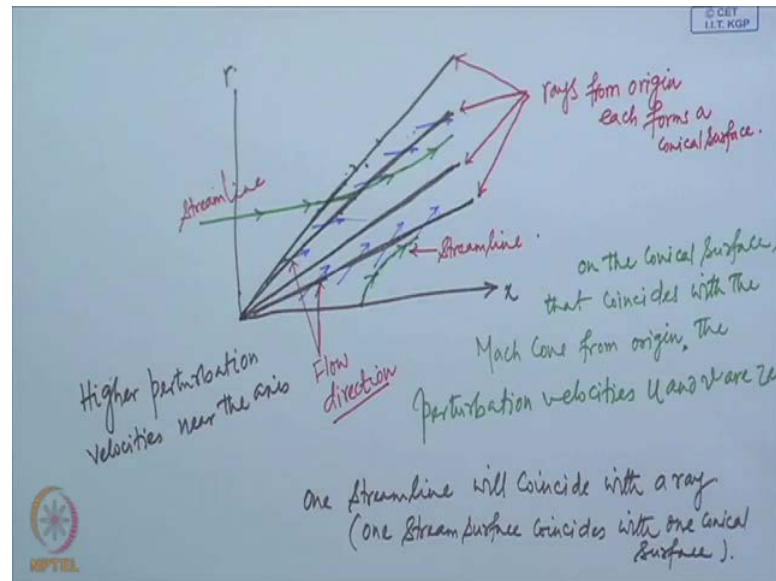 © CET
I.I.T. KGP
r
rays from origin
each forms a
conical surface.
Streamline
Streamline.
x
on the conical surface,
that coincides with the
Mach Cone from origin, the
perturbation velocities u and v are ze
Flow
direction
Higher perturbation
velocities near the axis
one Streamline will coincide with a ray
(one Stream surface coincides with one conical
surface).
NPTEL